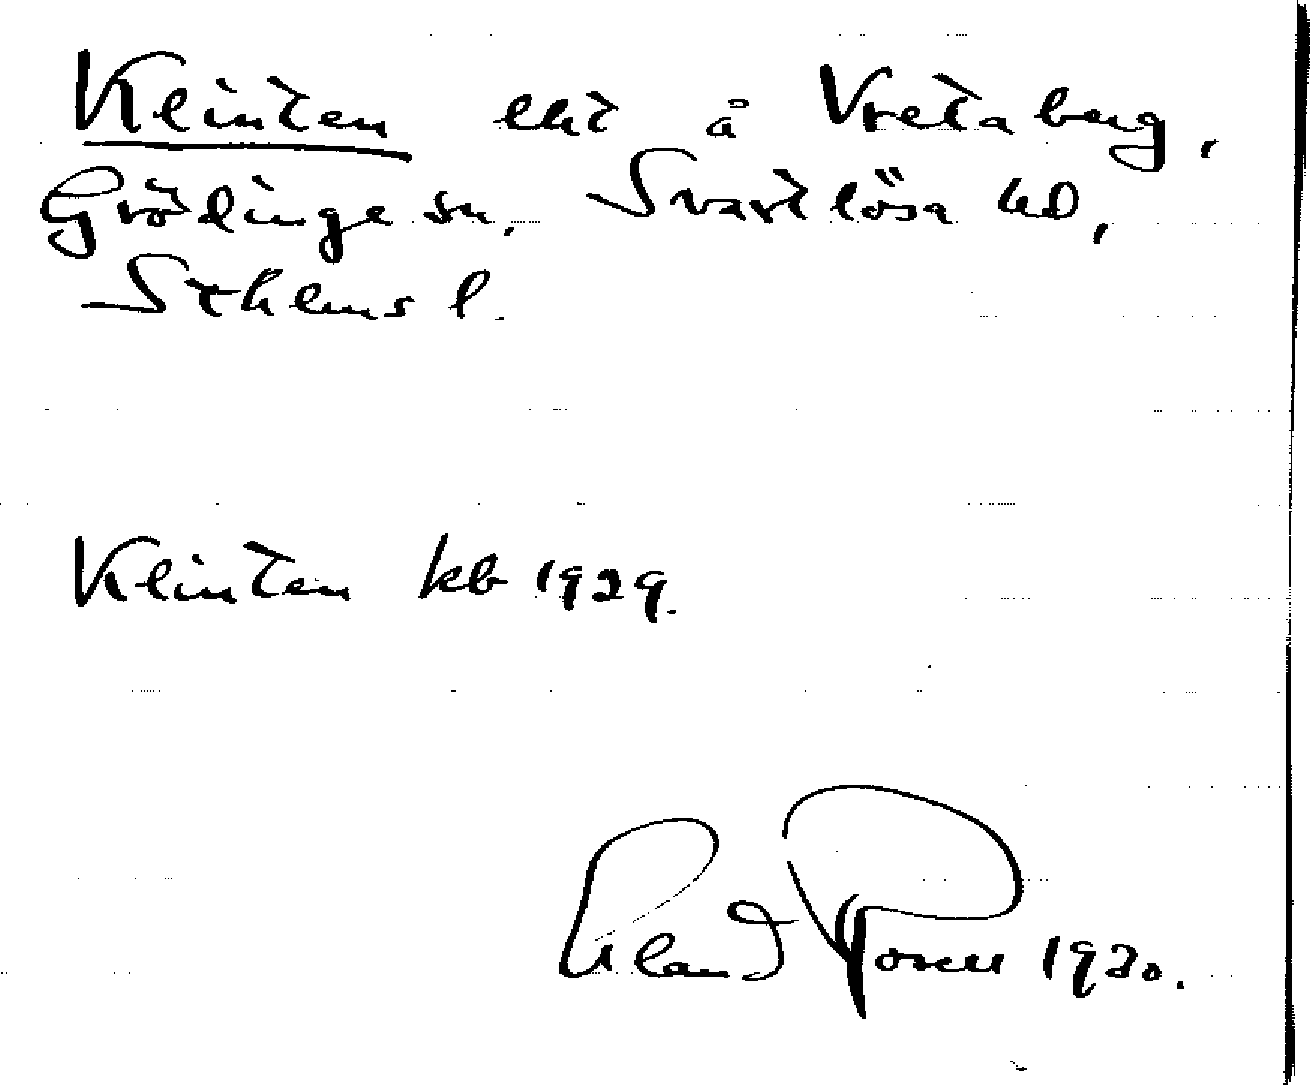 Klinten lht å Vretaberg,
Grödinge sn, Svartlösa hd,
Sthlms l.
Klinten kb 1929.
Rosell 1930.